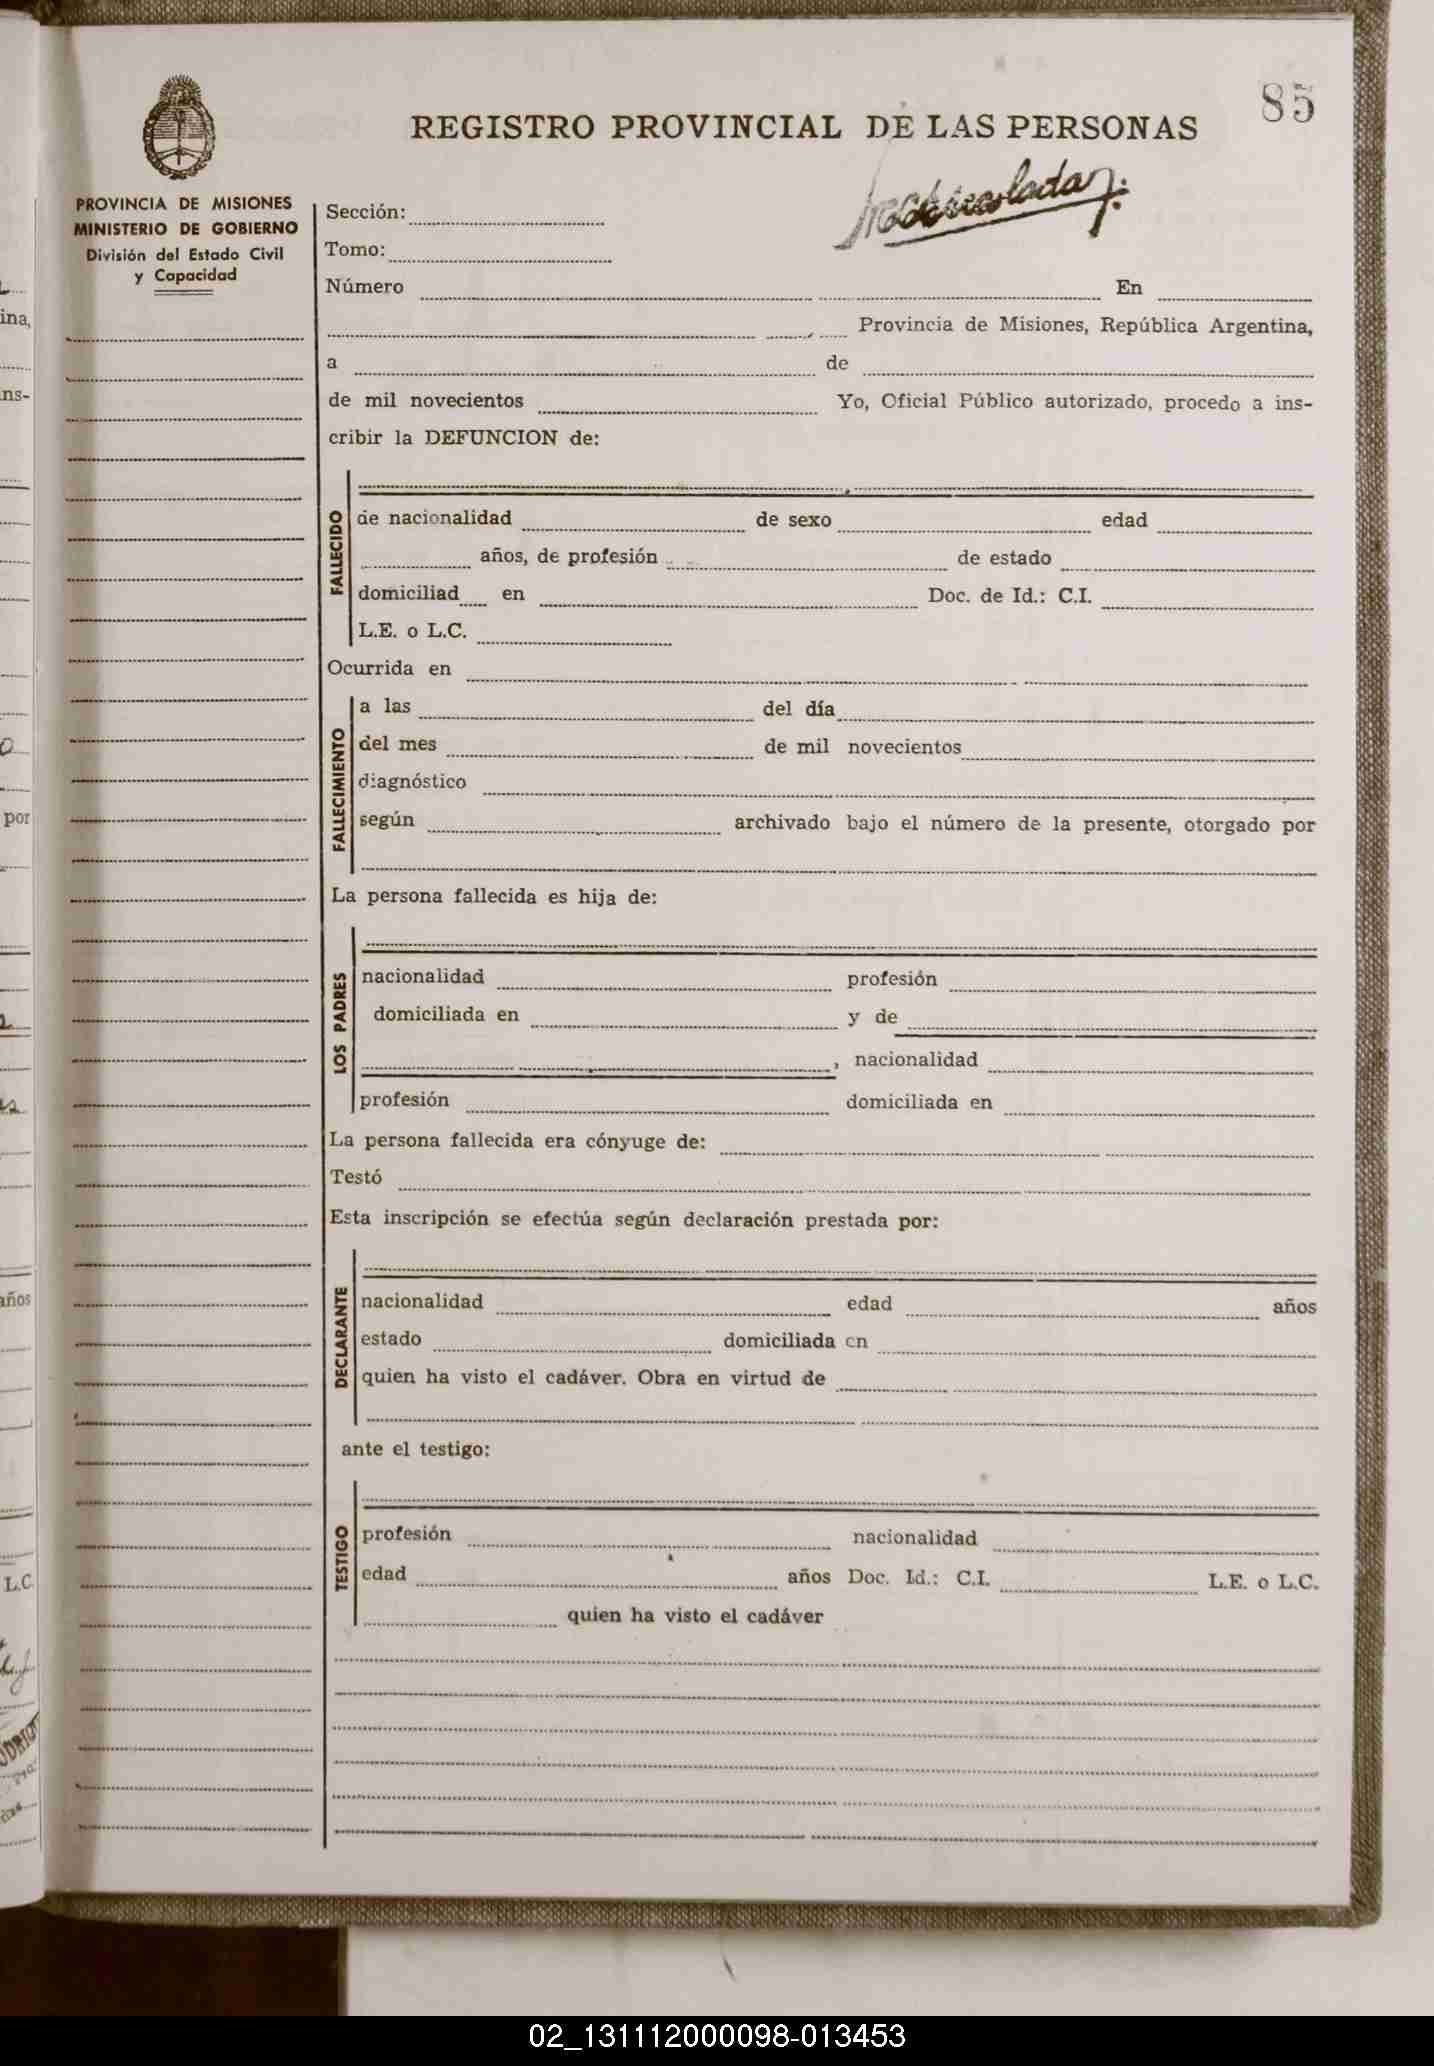 85
REGISTRO PROVINCIAL DE LAS PERSONAS
PROVINCIA DE MISIONES
MINISTERIO DE GOBIERNO
División del Estado Civil
y Capacidad
Sección:
Tomo:
Número En
Provincia de Misiones, República Argentina,
a de
de mil novecientos Yo, Oficial Público autorizado, procedo a ins-
cribir la DEFUNCION de:
FALLECIDO
de nacionalidad de sexo edad
años, de profesión de estado
domiciliad en Doc. de Id.: C.I.
L.E. o L.C.
Ocurrida en
FALLECIMIENTO
a las del día
del mes de mil novecientos
diagnóstico
según archivado bajo el número de la presente, otorgado por
La persona fallecida es hija de:
LOS PADRES
nacionalidad profesión
domiciliada en y de
, nacionalidad
profesión domiciliada en
La persona fallecida era cónyuge de:
Testó
Esta inscripción se efectúa según declaración prestada por:
DECLARANTE
nacionalidad edad años
estado domiciliada en
quien ha visto el cadáver. Obra en virtud de
ante el testigo:
TESTIGO
profesión nacionalidad
edad años Doc. Id.: C.I. L.E. o L.C.
quien ha visto el cadáver
ina,
ins-
por
años
L.C.
02_131112000098-013453